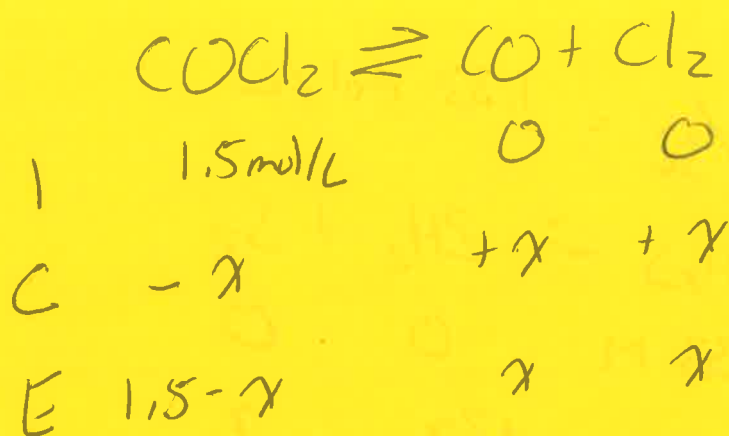 COCl₂ ⇌ CO + Cl₂
I 1.5 mol/L 0 0
C - x + x + x
E 1.5 - x x x